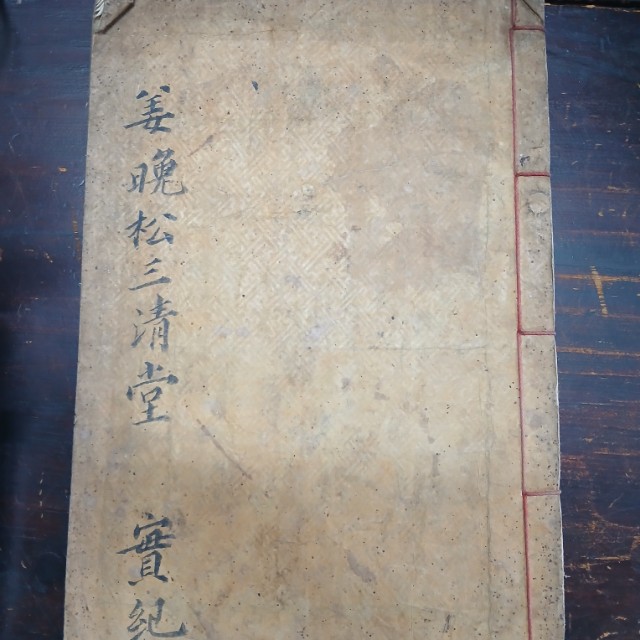 姜晚松三清堂 實紀